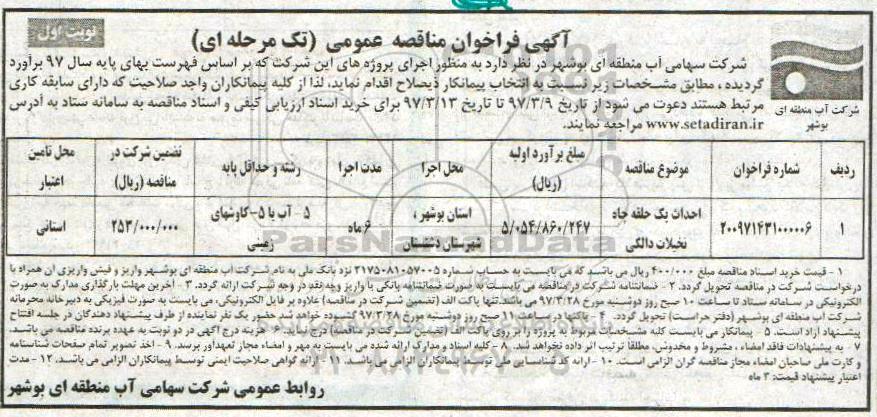 نوبت اول
آگهی فراخوان مناقصه عمومی (تک مرحله ای)
شرکت آب منطقه ای
بوشهر
شرکت سهامی آب منطقه ای بوشهر در نظر دارد به منظور اجرای پروژه های این شرکت که بر اساس فهرست بهای پایه سال ۹۷ برآورد
گردیده ، مطابق مشخصات زیر نسبت به انتخاب پیمانکار ذیصلاح اقدام نماید، لذا از کلیه پیمانکاران واجد صلاحیت که دارای سابقه کاری
مرتبط هستند دعوت می شود از تاریخ ۹۷/۳/۹ تا تاریخ ۹۷/۳/۱۳ برای خرید اسناد ارزیابی کیفی و اسناد مناقصه به سامانه ستاد به آدرس
www.setadiran.ir مراجعه نمایند.
ردیف شماره فراخوان موضوع مناقصه مبلغ برآورد اولیه (ریال) محل اجرا مدت اجرا رشته و حداقل پایه تضمین شرکت در مناقصه (ریال) محل تامین اعتبار
۱ ۲۰۰۹۷۱۴۳۱۰۰۰۰۰۶ احداث یک حلقه چاه نخیلات دالکی ۵/۰۵۴/۸۶۰/۲۴۷ استان بوشهر ، شهرستان دشتستان ۶ ماه ۵- آب یا ۵-کاوشهای زمینی ۲۵۳/۰۰۰/۰۰۰ استانی
ParsNamadData
۱ - قیمت خرید اسناد مناقصه مبلغ ۴۰۰/۰۰۰ ریال می باشد که می بایست به حساب شماره ۲۱۷۵۰۸۱۰۵۷۰۰۵ نزد بانک ملی به نام شرکت آب منطقه ای بوشهر واریز و فیش واریزی ان همراه با
درخواست شرکت در مناقصه تحویل گردد. ۲ - ضمانتنامه شرکت در مناقصه می بایست به صورت ضمانتنامه بانکی یا واریز وجه نقد در وجه شرکت ارائه گردد. ۳ - آخرین مهلت بارگذاری مدارک به صورت
الکترونیکی در سامانه ستاد تا ساعت ۱۰ صبح روز دوشنبه مورخ ۹۷/۳/۲۸ می باشد.تنها پاکت الف (تضمین شرکت در مناقصه) علاوه بر فایل الکترونیکی، می بایست به صورت فیزیکی به دبیرخانه محرمانه
شرکت اب منطقه ای بوشهر (دفتر حراست) تحویل گردد. ۴ - پاکتها در ساعت ۱۱ صبح روز دوشنبه مورخ ۹۷/۳/۲۸ گشوده خواهد شد حضور یک نفر نماینده از طرف پیشنهاد دهندگان در جلسه افتتاح
پیشنهاد آزاد است. ۵ - پیمانکار می بایست کلیه مشخصات مربوط به پروژه را بر روی پاکت الف (تضمین شرکت در مناقصه) درج نماید. ۶ - هزینه درج آگهی در دو نوبت به عهده برنده مناقصه می باشد.
۷ - به پیشنهادات فاقد امضاء ، مشروط و مخدوش، مطلقا ترتیب اثر داده نخواهد شد. ۸ - کلیه اسناد و مدارک ارائه شده می بایست به مهر و امضاء مجاز تعهداور برسد. ۹ - اخذ تصویر تمام صفحات شناسنامه
و کارت ملی صاحبان امضاء مجاز مناقصه گران الزامی است. ۱۰ - ارائه کد شناسایی ملی توسط پیمانکاران الزامی می باشد. ۱۱ - ارائه گواهی صلاحیت ایمنی توسط پیمانکاران الزامی می باشد. ۱۲ - مدت
اعتبار پیشنهاد قیمت: ۳ ماه
روابط عمومی شرکت سهامی آب منطقه ای بوشهر